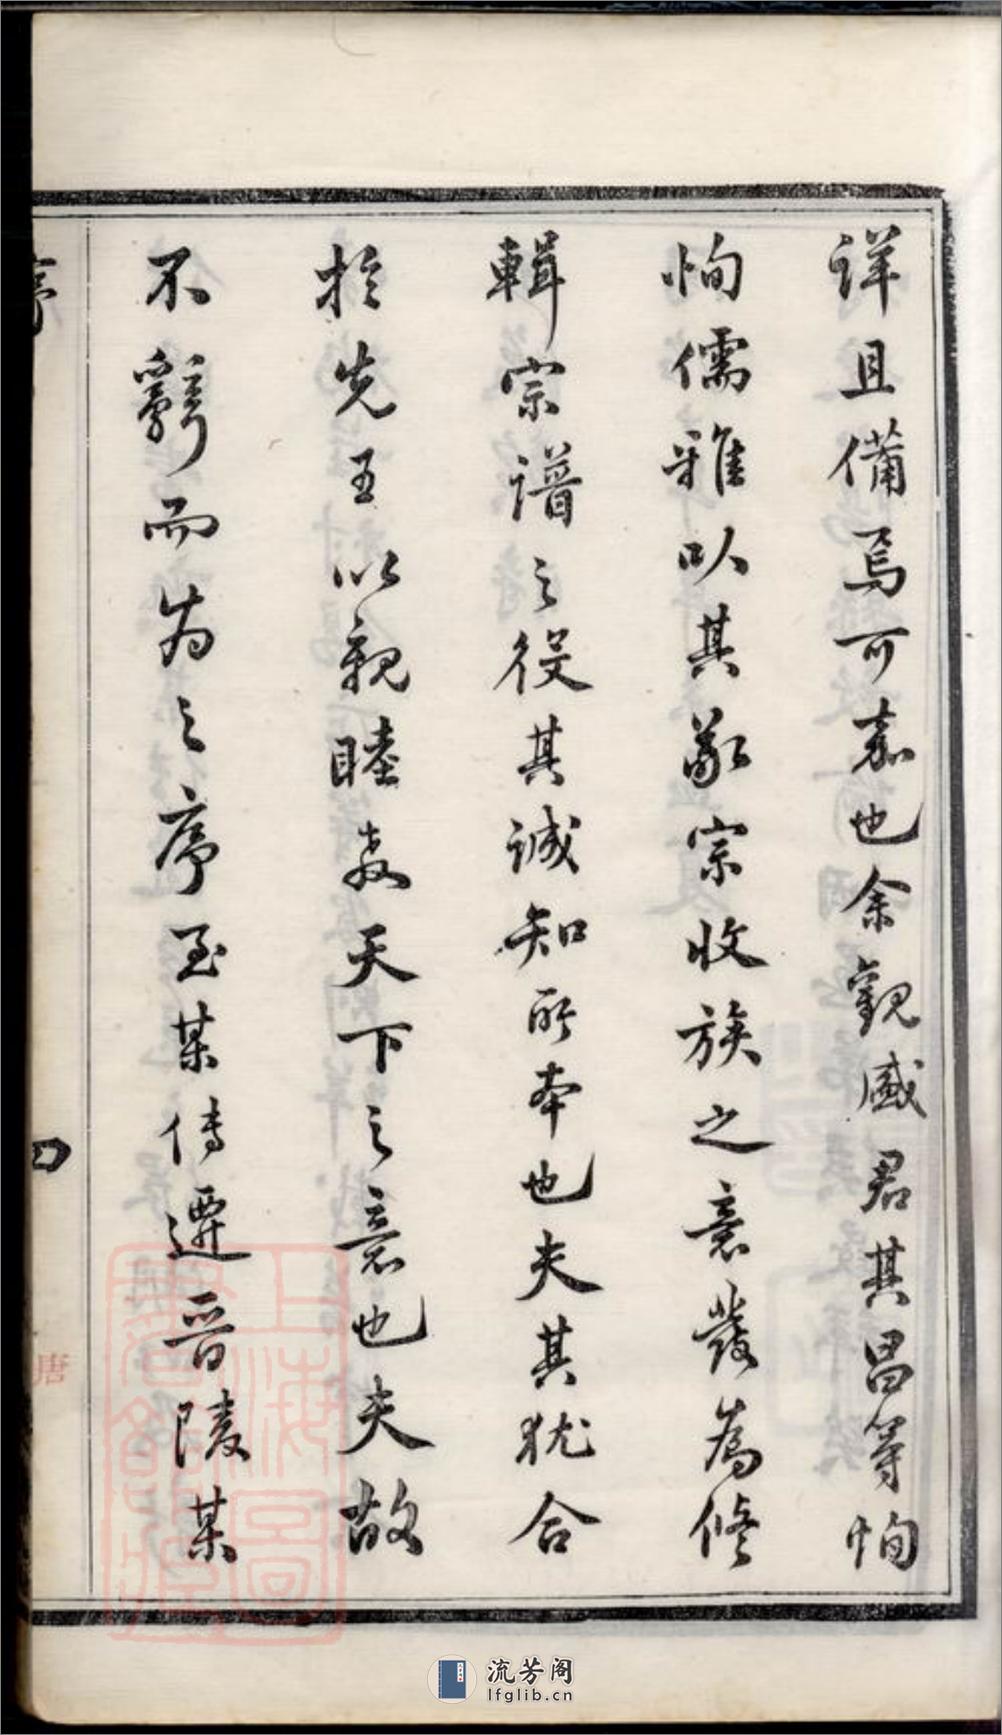 詳且備焉可嘉也余觀盛君其昌等恂
恂儒雅以其敬宗收族之意發為修
輯宗譜之役其誠知所本也夫其猶合
於先王以親睦教天下之意也夫故
不辭而為之序至某傳遷晉陵某
序
四
唐
上海圖書館藏
流芳阁
lfglib.cn